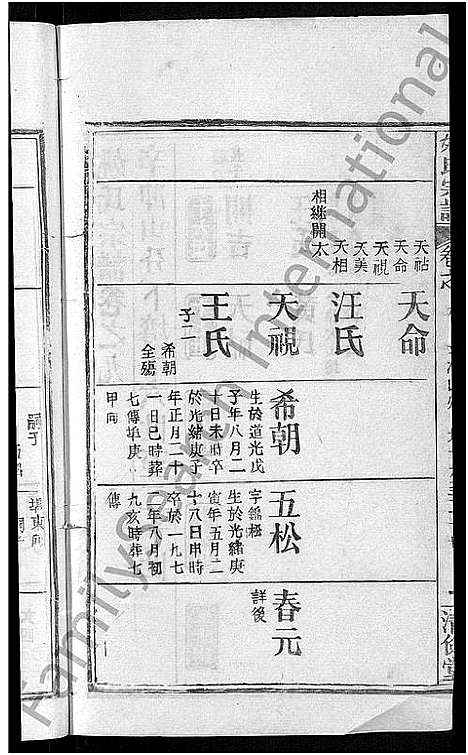 天祜
天命
天視
天美
天相
相繼開太
天命
汪氏
天視
王氏
子二
希朝
全殤
希朝
生於道光戊
子年八月二
十日未時卒
於光緒庚子
年正月二十
一日巳時葬
七傳坵庚
甲向
五松
字
生於光緒庚
寅年五月二
十八日申時
卒於一九七
一年八月初
九亥時葬七
傳
春元
詳後
氏宗譜
卷之
清修堂
FamilySearch International